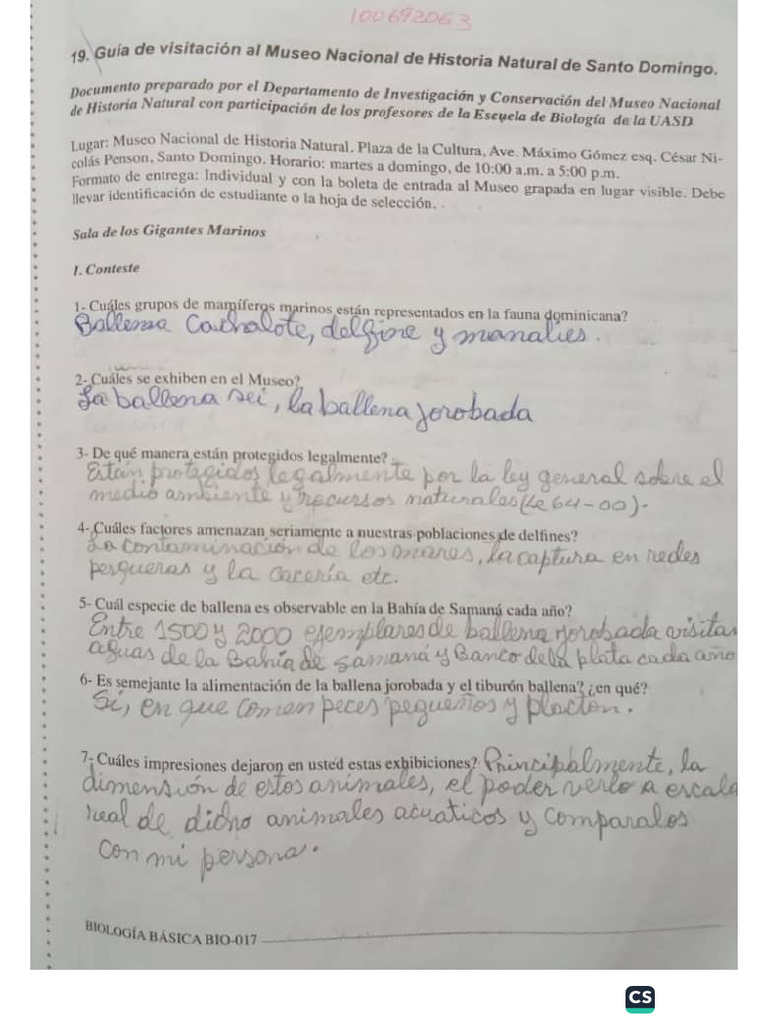 100692063
19. Guía de visitación al Museo Nacional de Historia Natural de Santo Domingo.
Documento preparado por el Departamento de Investigación y Conservación del Museo Nacional
de Historia Natural con participación de los profesores de la Escuela de Biología de la UASD
Lugar: Museo Nacional de Historia Natural. Plaza de la Cultura, Ave. Máximo Gómez esq. César Ni-
colás Penson, Santo Domingo. Horario: martes a domingo, de 10:00 a.m. a 5:00 p.m.
Formato de entrega: Individual y con la boleta de entrada al Museo grapada en lugar visible. Debe
llevar identificación de estudiante o la hoja de selección.
Sala de los Gigantes Marinos
I. Conteste
1- Cuáles grupos de mamíferos marinos están representados en la fauna dominicana?
Ballena Cachalote, delfine y manaties.
2- Cuáles se exhiben en el Museo?
La ballena sei, la ballena jorobada
3- De qué manera están protegidos legalmente?
Están protegidos legalmente por la ley general sobre el
medio ambiente y recursos naturales (Le 64-00).
4- Cuáles factores amenazan seriamente a nuestras poblaciones de delfines?
La contaminación de los mares, la captura en redes
pesqueras y la cacería etc.
5- Cuál especie de ballena es observable en la Bahía de Samaná cada año?
Entre 1500 y 2000 ejemplares de ballena jorobada visitan
aguas de la Bahía de Samaná y Banco de la plata cada año
6- Es semejante la alimentación de la ballena jorobada y el tiburón ballena? ¿en qué?
Si, en que comen peces pequeños y placton.
7- Cuáles impresiones dejaron en usted estas exhibiciones? Principalmente, la
dimensión de estos animales, el poder verlo a escala
real de dicho animales acuaticos y comparalos
con mi persona.
BIOLOGÍA BÁSICA BIO-017
CS